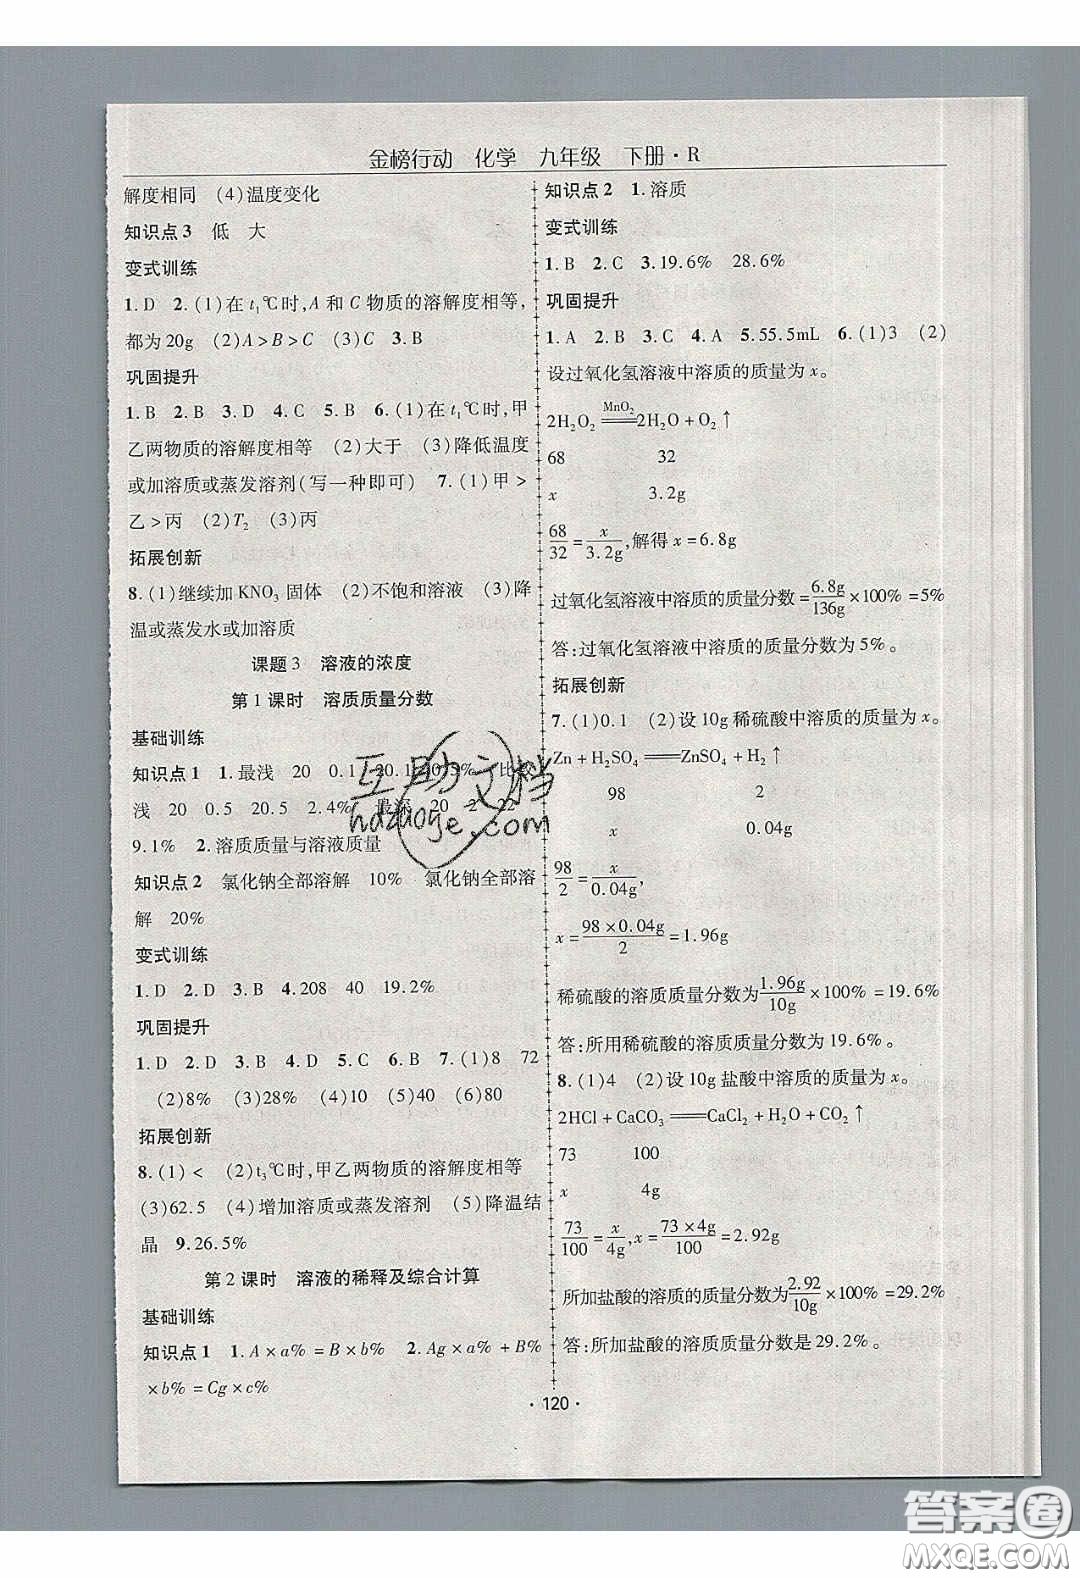 金榜行动 化学 九年级 下册·R
解度相同 (4)温度变化
知识点3 低 大
变式训练
1.D 2.(1)在t₁℃时,A和C物质的溶解度相等,
都为20g (2)A>B>C (3)C 3.B
巩固提升
1.B 2.B 3.D 4.C 5.B 6.(1)在t₁℃时,甲
乙两物质的溶解度相等 (2)大于 (3)降低温度
或加溶质或蒸发溶剂(写一种即可) 7.(1)甲>
乙>丙 (2)T₂ (3)丙
拓展创新
8.(1)继续加KNO₃固体 (2)不饱和溶液 (3)降
温或蒸发水或加溶质
课题3 溶液的浓度
第1课时 溶质质量分数
基础训练
知识点1 1.最浅 20 0.1 20.1 0.5% 比较
浅 20 0.5 20.5 2.4% 最深 20 2 22
9.1% 2.溶质质量与溶液质量
知识点2 氯化钠全部溶解 10% 氯化钠全部溶
解 20%
变式训练
1.D 2.D 3.B 4.208 40 19.2%
巩固提升
1.D 2.D 3.B 4.D 5.C 6.B 7.(1)8 72
(2)8% (3)80% (4)10 (5)40 (6)80
拓展创新
8.(1)< (2)t₃℃时,甲乙两物质的溶解度相等
(3)62.5 (4)增加溶质或蒸发溶剂 (5)降温结
晶 9.26.5%
第2课时 溶液的稀释及综合计算
基础训练
知识点1 1.A×a%=B×b% 2.Ag×a%+B%
×b%=Cg×c%
知识点2 1.溶质
变式训练
1.B 2.C 3.19.6% 28.6%
巩固提升
1.A 2.B 3.C 4.A 5.55.5mL 6.(1)3 (2)
设过氧化氢溶液中溶质的质量为x。
MnO₂
2H₂O₂══2H₂O+O₂↑
68 32
x 3.2g
68/32=x/3.2g,解得x=6.8g
过氧化氢溶液中溶质的质量分数=6.8g/136g×100%=5%
答:过氧化氢溶液中溶质的质量分数为5%。
拓展创新
7.(1)0.1 (2)设10g稀硫酸中溶质的质量为x。
Zn+H₂SO₄══ZnSO₄+H₂↑
98 2
x 0.04g
98/2=x/0.04g,
x=98×0.04g/2=1.96g
稀硫酸的溶质质量分数为1.96g/10g×100%=19.6%
答:所用稀硫酸的溶质质量分数为19.6%。
8.(1)4 (2)设10g盐酸中溶质的质量为x。
2HCl+CaCO₃══CaCl₂+H₂O+CO₂↑
73 100
x 4g
73/100=x/4g,x=73×4g/100=2.92g
所加盐酸的溶质的质量分数为2.92/10g×100%=29.2%
答:所加盐酸的溶质质量分数是29.2%。
·120·
互助文档
hdzuoye.com
答案圈
MXQE.COM